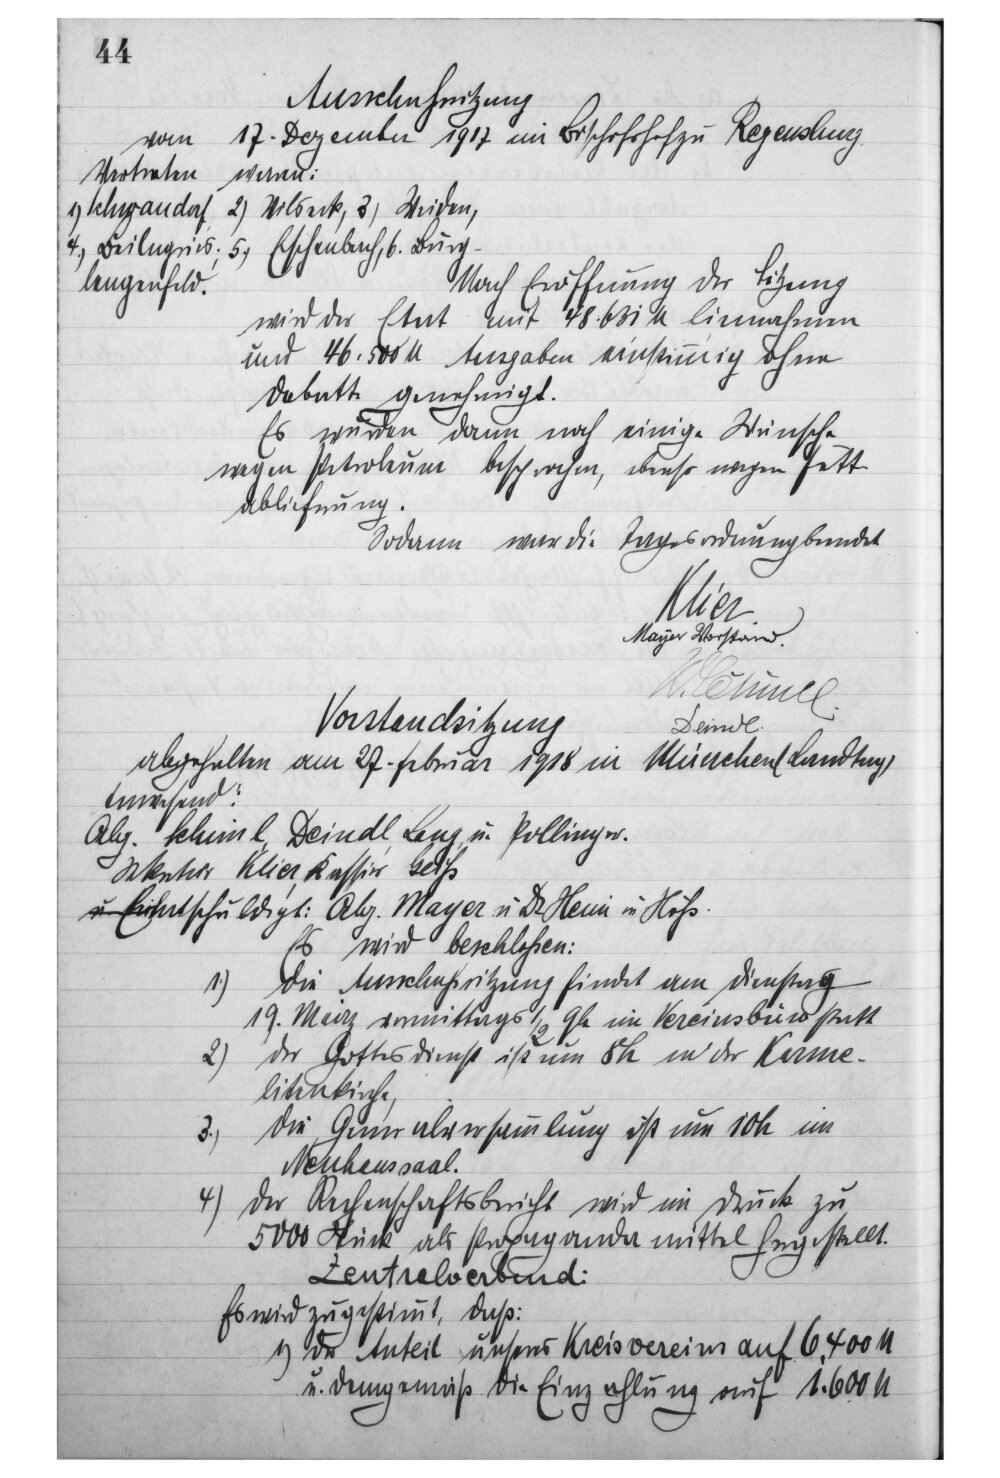 44
Ausschußsitzung
vom 17. Dezember 1917 im Bischofshof zu Regensburg
Vertreten waren:
1) Schwandorf, 2) Vilseck, 3) Weiden,
4.) Beilngries, 5) Eschenbach, 6. Burg-
lengenfeld.
Nach Eröffnung der Sitzung
wird der Etat mit 48.631 M Einnahmen
und 46.500 M Ausgaben einstimmig ohne
Debatte genehmigt.
Es wurden dann noch einige Wünsche
wegen Petroleum besprochen, ebenso wegen Fett
ablieferung.
Sodann war die Tagesordnung beendet
Klier
Mayer Vorstand.
Schiml.
Deindl.
Vorstandsitzung
abgehalten am 27. Februar 1918 in München (Landtag)
Anwesend:
Abg. Schiml, Deindl, Lang, u. Pollinger.
Sekretär Klier, Kassier Geiß
u Entschuldigt: Abg. Mayer u Dr Heim u Höß.
Es wird beschlossen:
1.) Die Ausschußsitzung findet am Dienstag
19. März vormittags 1/2 9h im Vereinsbüro statt
2) der Gottesdienst ist um 8h in der Karme-
litenkirche,
3.) Die Generalversammlung ist um 10h im
Neuhaussaal.
4) Der Rechenschaftsbericht wird im Druck zu
5000 Stück als Propaganda mittel hergestellt.
Zentralverband:
Es wird zugestimmt, daß:
1) der Anteil unseres Kreisvereins auf 6.400 M
u. demgemäß die Einzahlung auf 1.600 M